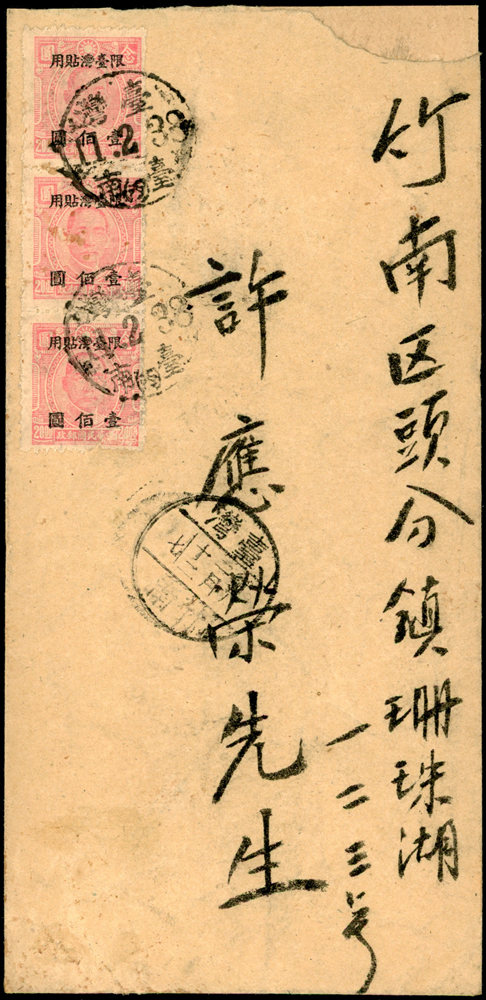 竹南区頭分鎮珊珠湖
一二三号
許應荣先生
限臺灣貼用
壹佰圓
限臺灣貼用
壹佰圓
限臺灣貼用
壹佰圓
臺灣
11.2.38
臺南
臺灣
2.38
臺南
臺灣